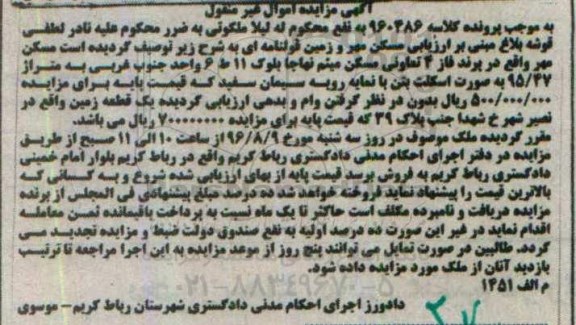 آگهی مزایده اموال غیر منقول
به موجب پرونده کلاسه ۹۶۰۴۸۶ به نفع محکوم له لیلا ملکوتی به ضرر محکوم علیه نادر لطفی
قوشه بلاغ مبنی بر ارزیابی مسکن مهر و زمین قولنامه ای به شرح زیر توصیف گردیده است مسکن
مهر واقع در پرند فاز ۴ تعاونی مسکن میثم نهاجا بلوک ۱۱ ط ۶ واحد جنوب غربی به متراژ
۹۵/۴۷ به صورت اسکلت بتن با نمایه رویه سیمان سفید که قیمت پایه برای مزایده
۵۰۰/۰۰۰/۰۰۰ ریال بدون در نظر گرفتن وام و بدهی ارزیابی گردیده یک قطعه زمین واقع در
نصیر شهر خ شهدا جنب پلاک ۳۹ که قیمت پایه برای مزایده ۷۰۰۰۰۰۰۰۰ ریال می باشد.
مقرر گردیده ملک موصوف در روز سه شنبه مورخ ۹۶/۸/۹ از ساعت ۱۰ الی ۱۱ صبح از طریق
مزایده در دفتر اجرای احکام مدنی دادگستری رباط کریم واقع در رباط کریم بلوار امام خمینی
دادگستری رباط کریم به فروش برسد قیمت پایه از بهای ارزیابی شده شروع و به کسانی که
بالاترین قیمت را پیشنهاد نماید فروخته خواهد شد ده درصد مبلغ پیشنهادی فی المجلس از برنده
مزایده دریافت و نامبرده مکلف است حاکثر تا یک ماه نسبت به پرداخت باقیمانده ثمن معامله
اقدام نماید در غیر این صورت ده درصد اولیه به نفع صندوق دولت ضبط و مزایده تجدید می
گردد. طالبین در صورت تمایل می توانند پنج روز از موعد مزایده به این اجرا مراجعه تا ترتیب
بازدید آنان از ملک مورد مزایده داده شود.
م الف ۱۴۵۱
۰۲۱-۸۸۳۴۹۶۷۰-۵
دادورز اجرای احکام مدنی دادگستری شهرستان رباط کریم- موسوی
۲۷